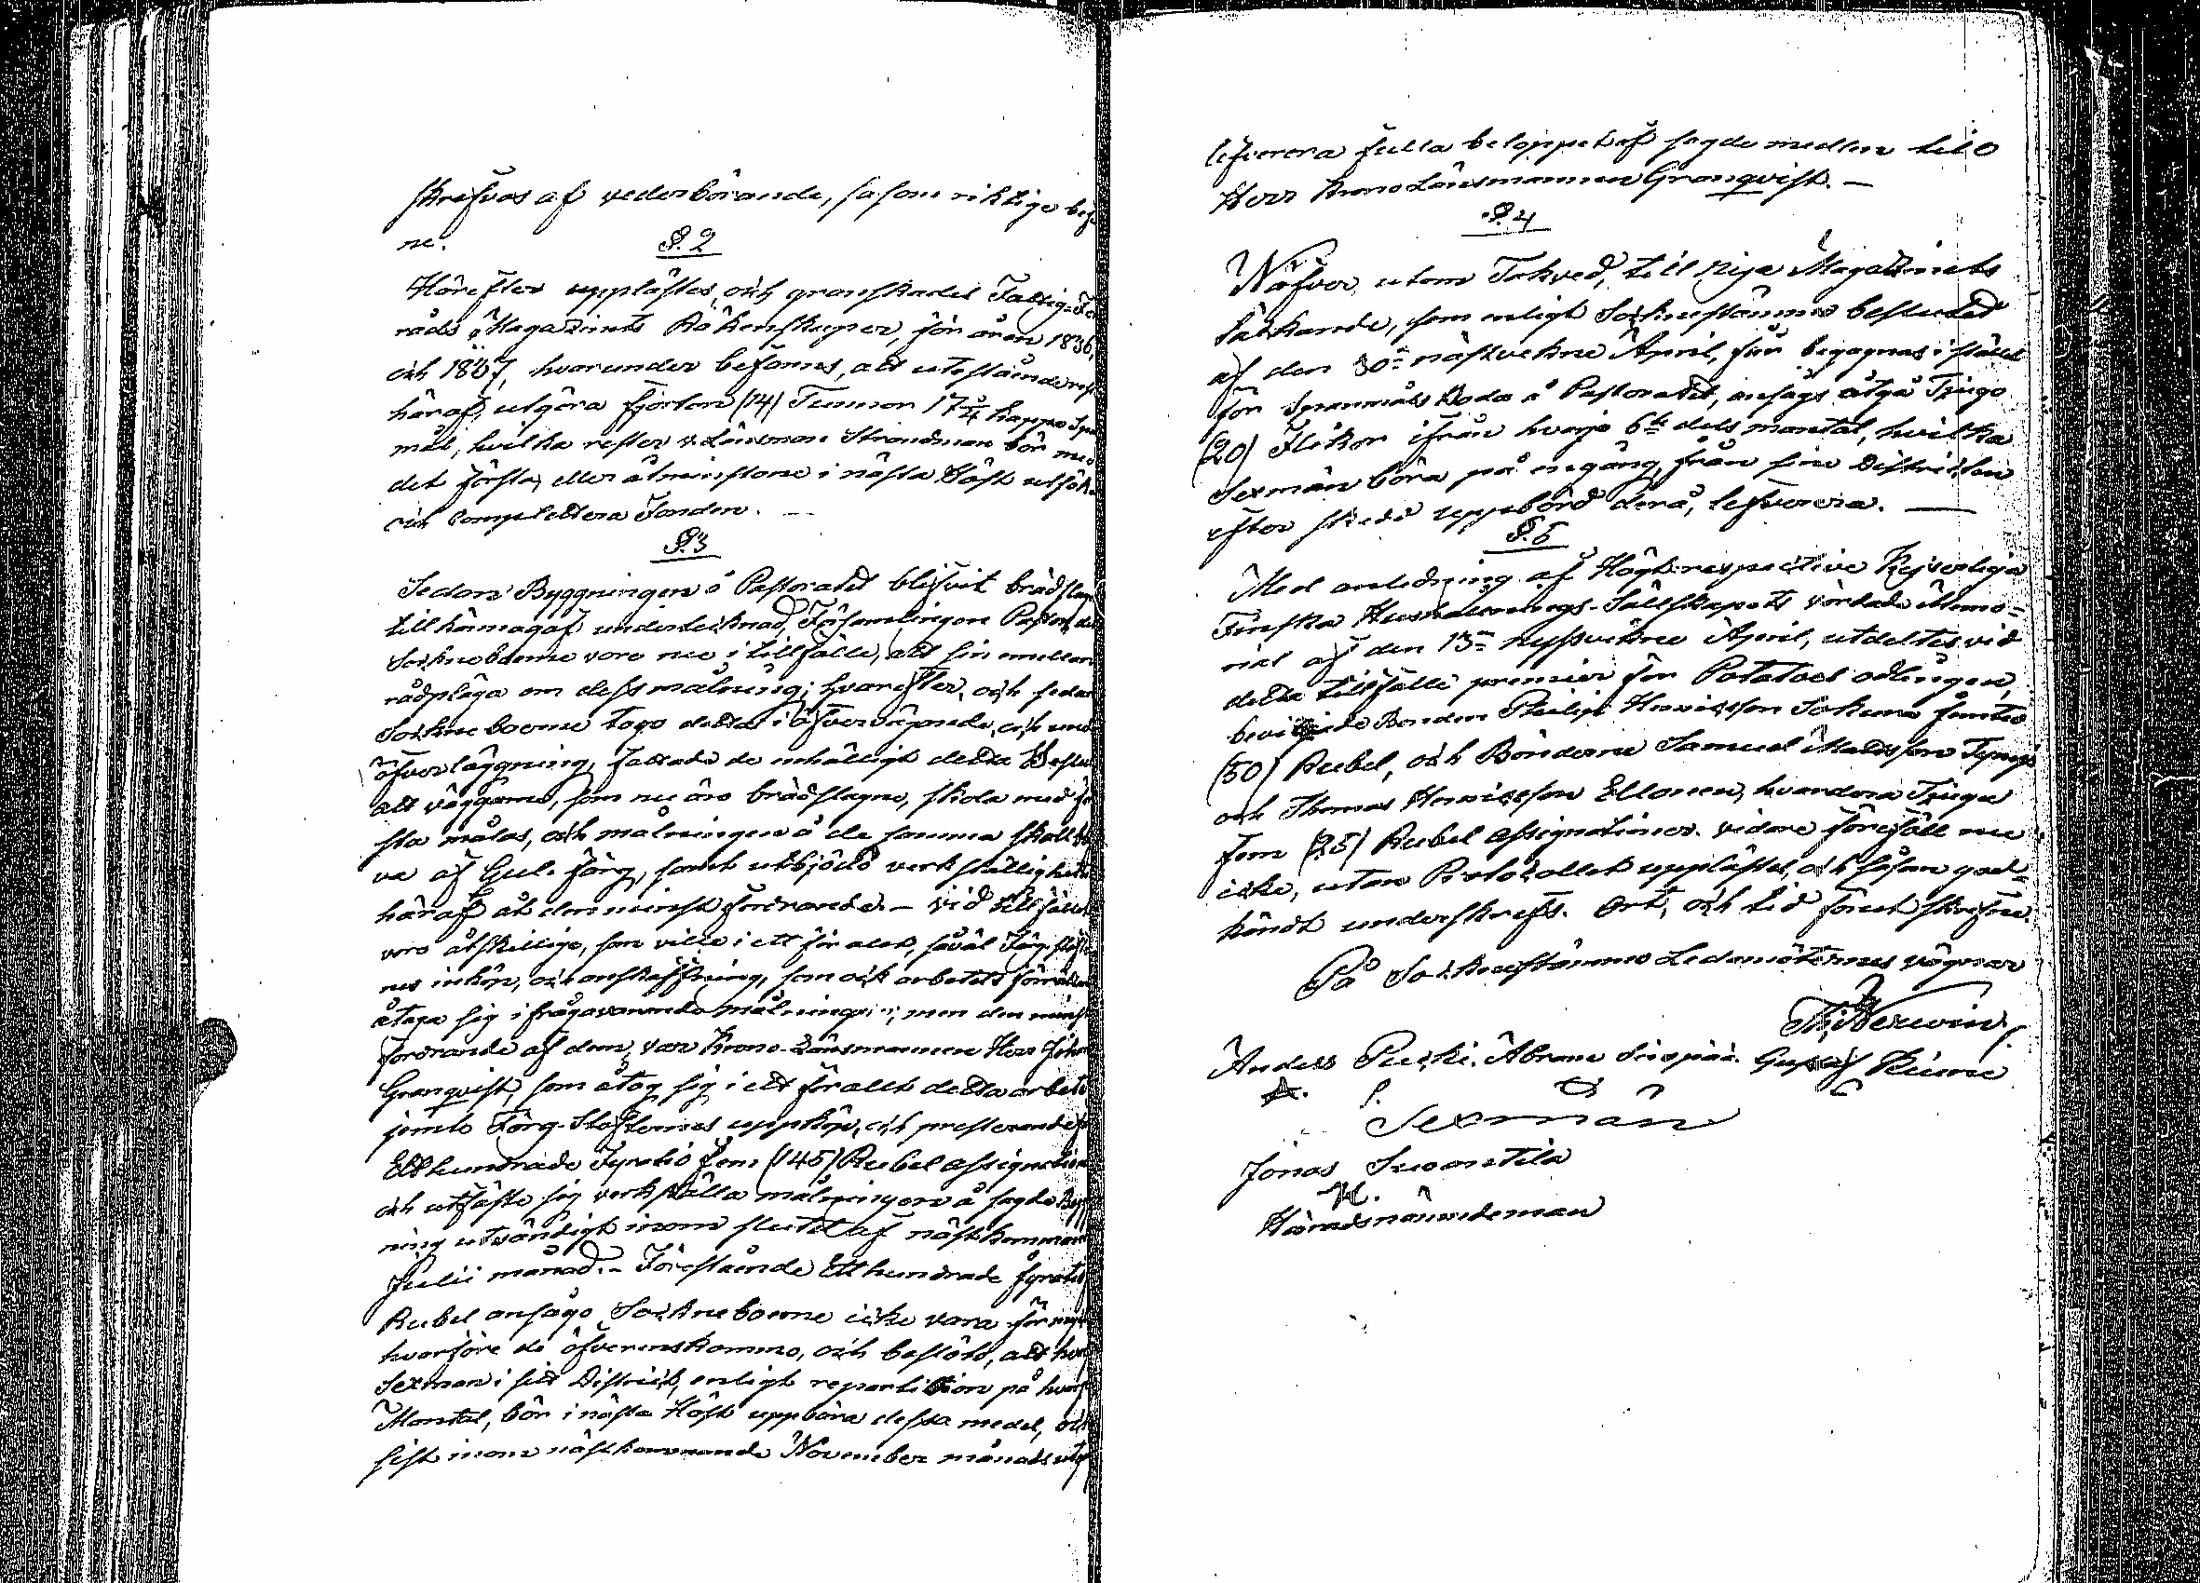 skrefvos af vederbörande, såsom riktige bef
ne.
§. 2
Härefter upplästes, och granskades Fattig-Fö
råds Magazinets Räkenskaper, för åren 1836,
och 1837, hvarunder befanns, att utestående
häraf, utgöra fjorton (14) Tunnor 17 3/4 kappe Spa
mål, hvilka rester v. Länsman Strandman bör med
det första, eller åtminstone i nästa Höst utsök
och complettera Fonden. —
§. 3
Sedan Byggningen å Pastoratet blifvit brädslag
tillkännagaf undertecknad, Församlingens Pastor, at
Sockneboerne voro nu i tillfälle, att sin emellan
rådpläga om dess målning; hvarefter, och sedan
Sockneboerne togo detta i öfvervägande, och und
öfverläggning, fattade de enhälligt detta Beslu
att väggarne, som nu äro brädslagne, skola med fö
sta målas, och målningen å de samma skall bli
va af Gul-färg, samt utbjöds verkställigheten
häraf åt den minst fordrande. — Vid tillfället
voro åtskillige, som ville i ett för allt, såväl Färg-stoffer
nes inköp, och anskaffning, som ock arbetets förrättan
åtaga sig ifrågavarande målning; men den minst
fordrande af dem, var Krono-Länsmannen Herr Johan
Granqvist, som åtog sig i ett för allt detta arbete
jemte Färg-Stoffernes uppköp, och presterande för
Etthundrade Fyratio fem (145) Rubel Assignation
och utfäste sig verkställa målningen å sagde Bygg
ning utvändigt inom slutet af nästkommande
Julii månad. — Förestående Etthundrade fyratio
Rubel ansågo Sockneboerne icke vara för myc
hvarföre de öfverenskommo, och beslöto, att hvar
Sexman i sitt District, enligt repartition på hvarje
Mantal, bör i nästa Höst uppbära dessa medel, och
sist inom nästkommande November månads utg
lefverera fulla beloppet af sagde medlen till
Herr Krono Länsmannen Granqvist. —
§. 4
Näfver, utom Takved, till nya Magazinets
täckande, som enligt Sockenstämmo beslutet
af den 30de nästvekne April, får begagnas i stället
för Spannmåls Boda å Pastoratet, ansågs åtgå Tjugo
(20) Flikor ifrån hvarje 6te dels mantal, hvilka
Sexmän böra på en gång, från sine Districten
efter skedd uppbörd derå, lefverera. —
§. 5
Med anledning af Högtrespective Kejserliga
Finska Hushållnings-Sällskapets värdade Memo-
rial af den 13de nyssvekne April, utdeltes vid
detta tillfälle premier för Potatoes odlingen,
beviljade Bonden Philip Henricsson Sokura femtio
(50) Rubel, och Bönderne Samuel Mattsson Tynys
och Thomas Henricsson Ellonen, hvardera Tjugu
fem (25) Rubel Assignationer. vidare föreföll nu
icke, utan Protocollet upplästes, och såsom god-
kändt underskrefs. Ort, och tid förut skrefne.
På Sockenstämmo Ledamöternes vägnar
Anders Puski. Abram Gustaf Kiuru
Sexmän
Jonas Suontila
Häradsnämndeman